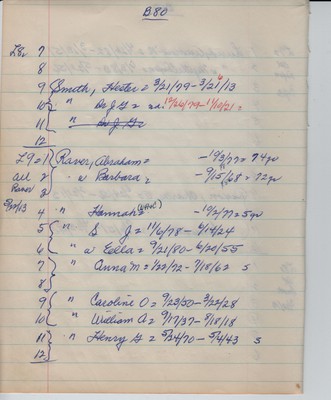 B.80
L8= 7
8
9 Smith, Hester = 3/21/79 - 3/24/13
10 " Dr J G = 12/26/79-11/10/21=
11 " Dr J G =
12
L9=1 Raver, Abraham= -10/3/77=74yr
all 2 " w Barbara= -9/15/68=72yr
Raver 3
5/27/13 4 " Hannah= -10/2/77=5yr
5 " S J= 11/6/78-6/14/24
6 " w Eella= 9/21/80-6/20/55
7 " Anna M= 1/22/72-7/18/62 s
8
9 " Caroline O= 9/23/50-3/22/28
10 " William A= 9/17/37-8/18/18
11 " Henry G= 5/24/70-5/4/43 s
12